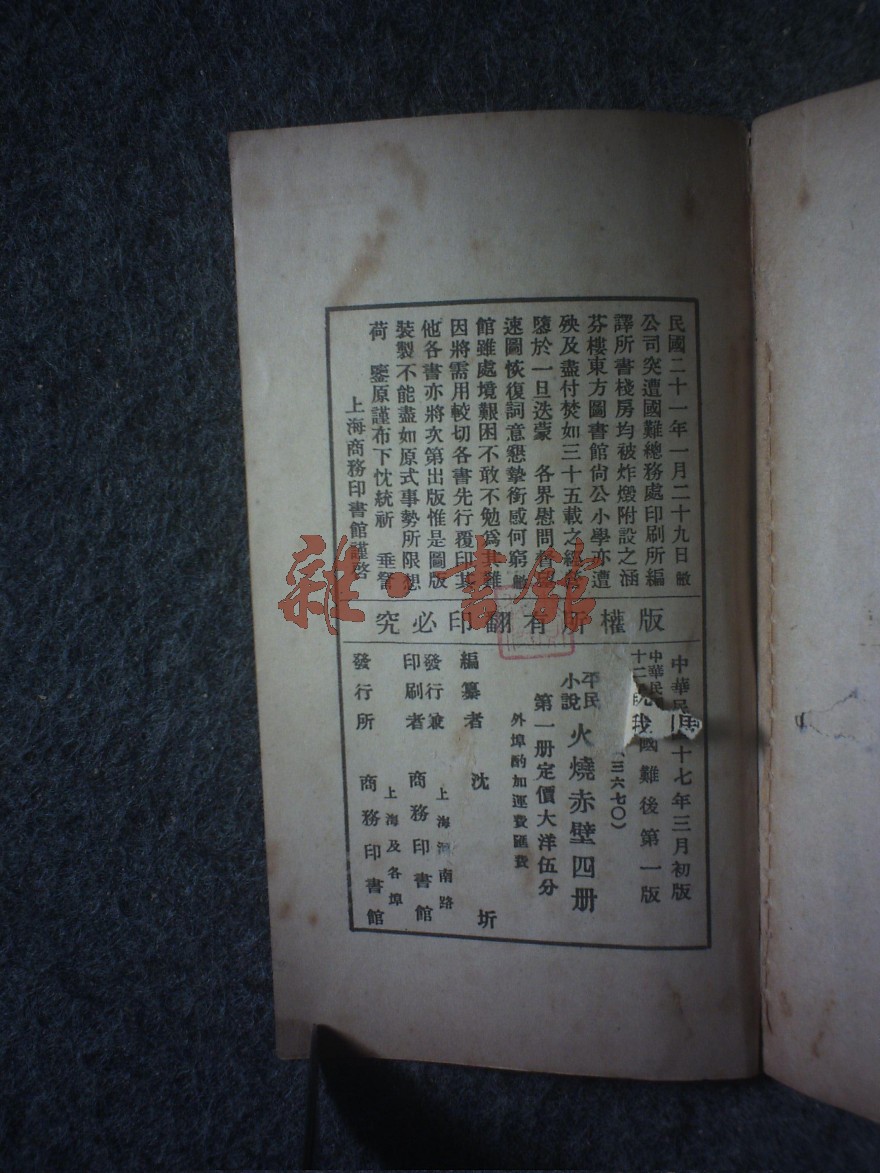 民國二十一年一月二十九日敝
公司突遭國難總務處印刷所編
譯所書棧房均被炸燬附設之涵
芬樓東方圖書館尙公小學亦遭
殃及盡付焚如三十五載之經營
隳於一旦迭蒙 各界慰問督望
速圖恢復詞意懇摯銜感何窮敝
館雖處境艱困不敢不勉爲其難
因將需用較切各書先行覆印其
他各書亦將次第出版惟是圖版
裝製不能盡如原式事勢所限想
荷 鑒原謹布下忱統祈 垂詧
上海商務印書館謹啓
版權所有翻印必究
中華民 十七年三月初版
中華民 十二 國難後第一版
(三六七〇)
平民小說 火燒赤壁四册
第一册定價大洋伍分
外埠酌加運費匯費
編纂者 沈圻
發行兼印刷者 上海河南路 商務印書館
發行所 上海及各埠 商務印書館
雜·書館